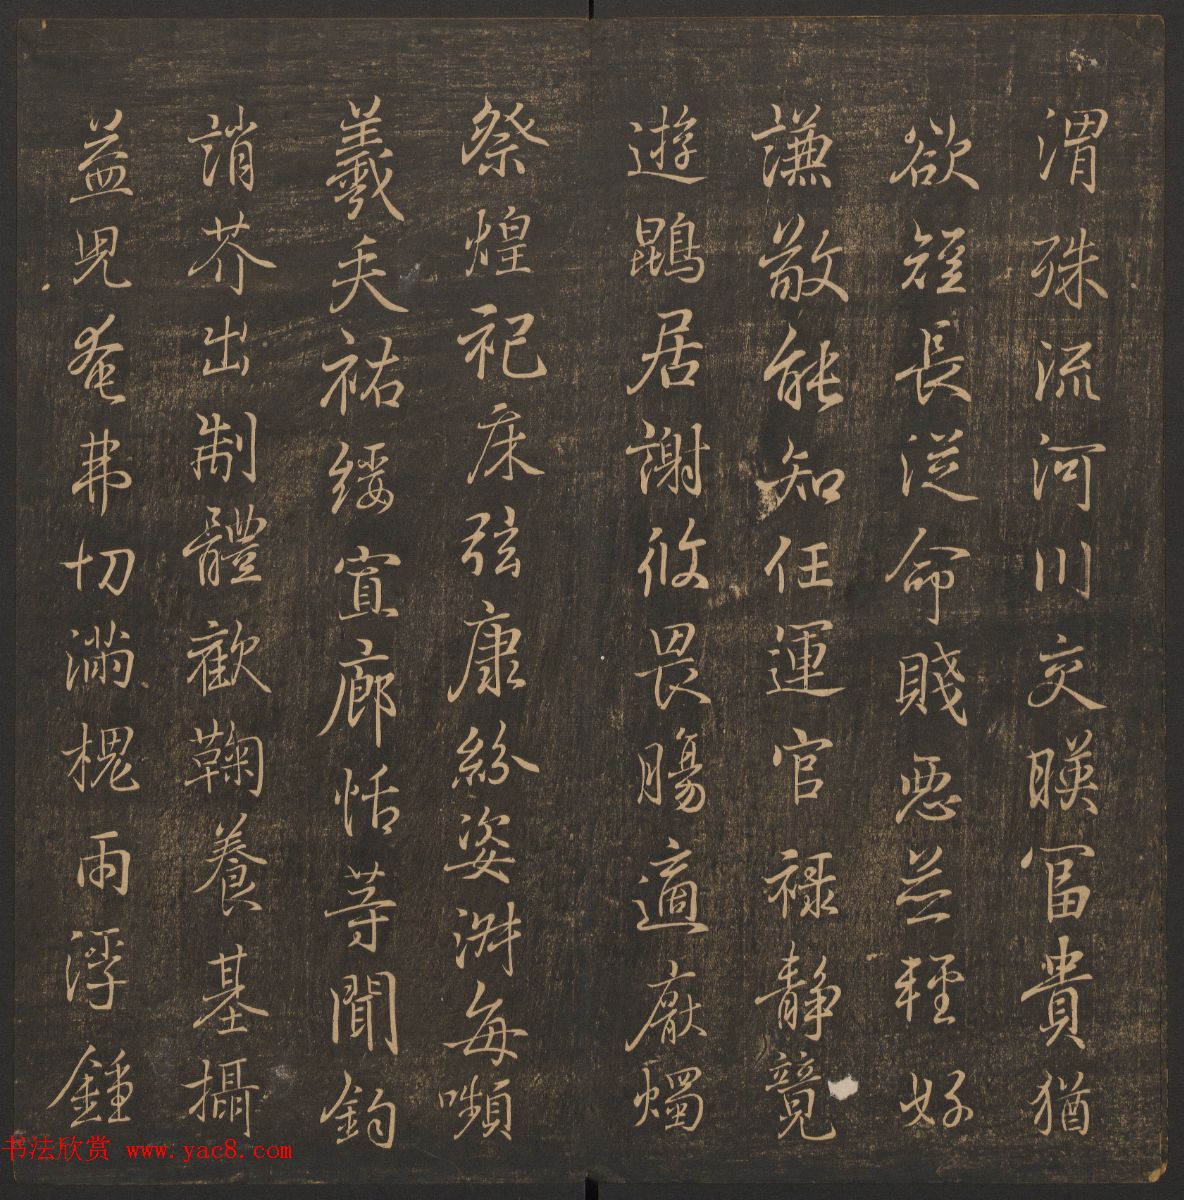 渭殊流河川交暎富貴猶
欲短長從命賤惡並輕好
謙敬能知任運官祿靜競
遊鵾居謝攸畏腸適厭燭
祭煌祀床弦康紛姿淵每嚬
羲夫祐綏宜廊恬等聞鈞
誚芥出制體歡鞠養基攝
益兒奄弗切滿槐雨浮鍾
书法欣赏 www.yac8.com